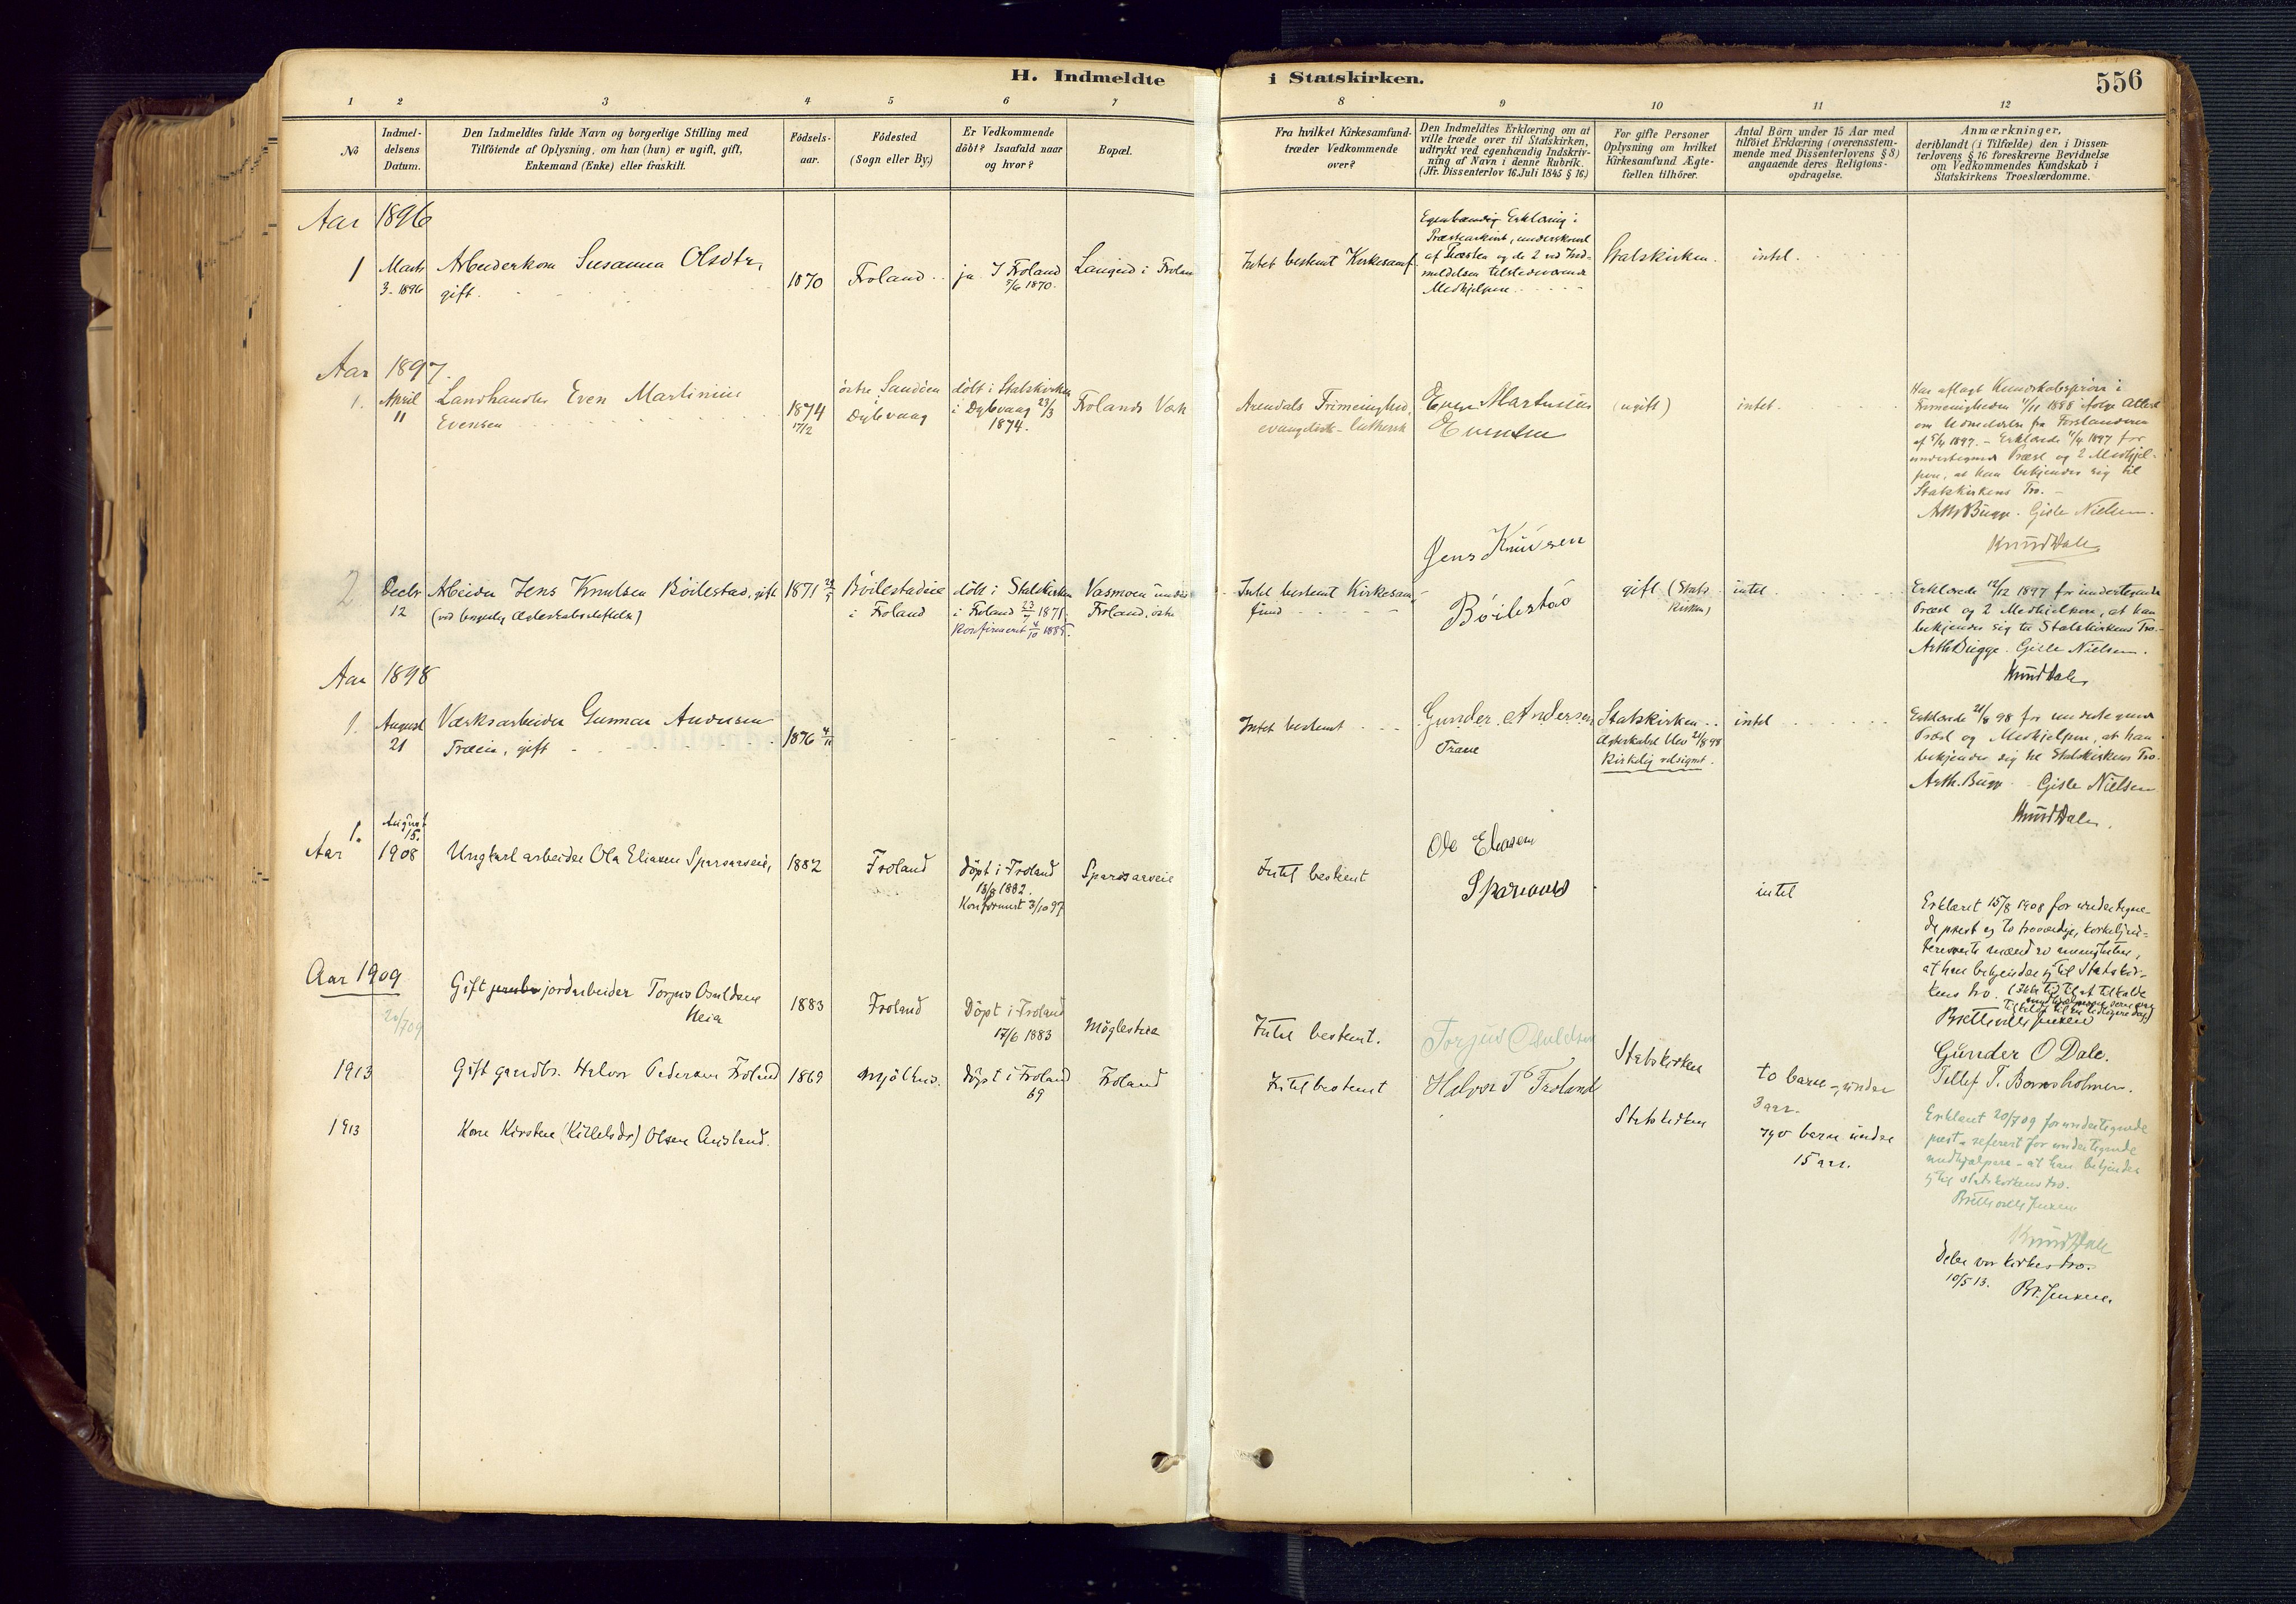 H. Indmeldte i Statskirken.
556
1 2 3 4 5 6 7 8 9 10 11 12
No
Indmel-
delsens
Datum.
Den Indmeldtes fulde Navn og borgerlige Stilling med
Tilföiende af Oplysning, om han (hun) er ugift, gift,
Enkemand (Enke) eller fraskilt.
Födsels-
aar.
Födested
(Sogn eller By.)
Er Vedkommende
döbt? Isaafald naar
og hvor?
Bopæl.
Fra hvilket Kirkesamfund-
træder Vedkommende
over?
Den Indmeldtes Erklæring om at
ville træde over til Statskirken,
udtrykt ved egenhændig Indskriv-
ning af Navn i denne Rubrik.
(Jfr. Dissenterlov 16. Juli 1845 § 16)
For gifte Personer
Oplysning om hvilket
Kirkesamfund Ægte-
fællen tilhörer.
Antal Börn under 15 Aar med
tilföiet Erklæring (overensstem-
mende med Dissenterlovens § 8)
angaaende deres Religions-
opdragelse.
Anmærkninger,
deriblandt (i Tilfælde) den i Dissen-
terlovens § 16 foreskrevne Bevidnelse
om Vedkommendes Kundskab i
Statskirkens Troeslærdomme.
Aar 1896
1
Marts
3. 1896
Arbeiderkone Susanna Olsdtr,
gift.
1870
Froland
ja. I Froland
5/6 1870.
Intet bestemt Kirkesamf.
Egenhændig Erklæring i
af Præsten og de 2 ved Ind-
meldelsen tilstedeværende
Medhjelpere.
Statskirken.
intet.
Aar 1897.
1.
April
11
Landhandler Even Martinius
Evensen
1874
17/2
östre Sandöen
Dybvaag
döbt i Statskirken
i Dybvaag 23/3
1874.
Frolands Værk
Arendals Frimenighed,
evangelisk-luthersk
Even Martinius
Evensen
(ugift)
intet.
Har aflagt Kundskabspröve i
Frimenigheden 11/11 1888 ifölge Attest
om Udmeldelse fra Forstanderen
af 5/4 1897. - Erklærede 11/4 1897 for
undertegnede Præst og 2 Medhjel-
pere, at han bekjender sig til
Statskirkens Tro.
Arth Bugge. Gisle Nielsen.
Knud Dale
2
Decbr
12
Arbeider Jens Knutsen Böilestad, gift
(ved borgerlig Ægteskabsstiftelse)
1871
Böilestadeie
i Froland
döbt i Statskirken
i Froland 23/7 1871.
Konfirmeret 4/10 1885.
Vasmoen under
Froland, östre
Intet bestemt Kirkesam-
fund
Jens Knudsen
Böilestad
gift (Stats
kirken)
intet
Erklærede 12/12 1897 for undertegnede
Præst og 2 Medhjelpere, at han
bekjender sig til Statskirkens Tro.
Arth Bugge. Gisle Nielsen.
Knud Dale
Aar 1898
1.
August
21
Værksarbeider Gunnar Andersen
Træeie, gift
1876 4/11
Intet bestemt
Gunder Andersen
Træeie
Statskirken
Ægteskabet blev 21/8 98
kirkelig velsignet.
intet
Erklærede 21/8 98 for undertegnede
Præst og Medhjelpere, at han
bekjender sig til Statskirkens Tro.
Arth. Bugge Gisle Nielsen
Knud Dale.
1.
August
15.
Aar 1908
Ungkarl arbeider Ola Eliasen Sparsaaseie,
1882
Froland
Döpt i Froland
13/8 1882.
Konfirmert 3/10 97
Sparsaaseie
Intet bestemt
Ole Eliasen
Sparsaas
intet
Erklæret 15/8 1908 for undertegne-
de prest og to troværdige, kirkelig in-
teresserte mænd av menigheten,
at han bekjender sig til Statskir-
kens tro. (Ikke tid til at tilkalde
Brettevill Jensen
Gunder O Dale.
Tellef T. Bornsholmen.
Aar 1909
20/7 09
Gift jordarbeider Torjus Osuldsen
Heia
1883
Froland
Döpt i Froland
17/6 1883
Möglestua
Intet bestemt.
Torjus Osuldsen
Statskirken
to barn - under
3 aar.
Erklæret 20/7 09 for undertegnede
prest - referert for undertegnede
medhjælpere - at han bekjender
sig til statskirkens tro.
Brettevill Jensen
Knud Dale
1913
Gift gaardbr. Halvor Pedersen Froland
1869
Mjölhus.
Döpt i Froland
69
Froland
Intet bestemt
Halvor P Froland
Statskirken
syv barn under
15 aar.
Deler vor kirkes tro.
10/5 13.
Br. Jensen.
1913
Kone Kirstene (Killelsdr) Olsen Ausland.